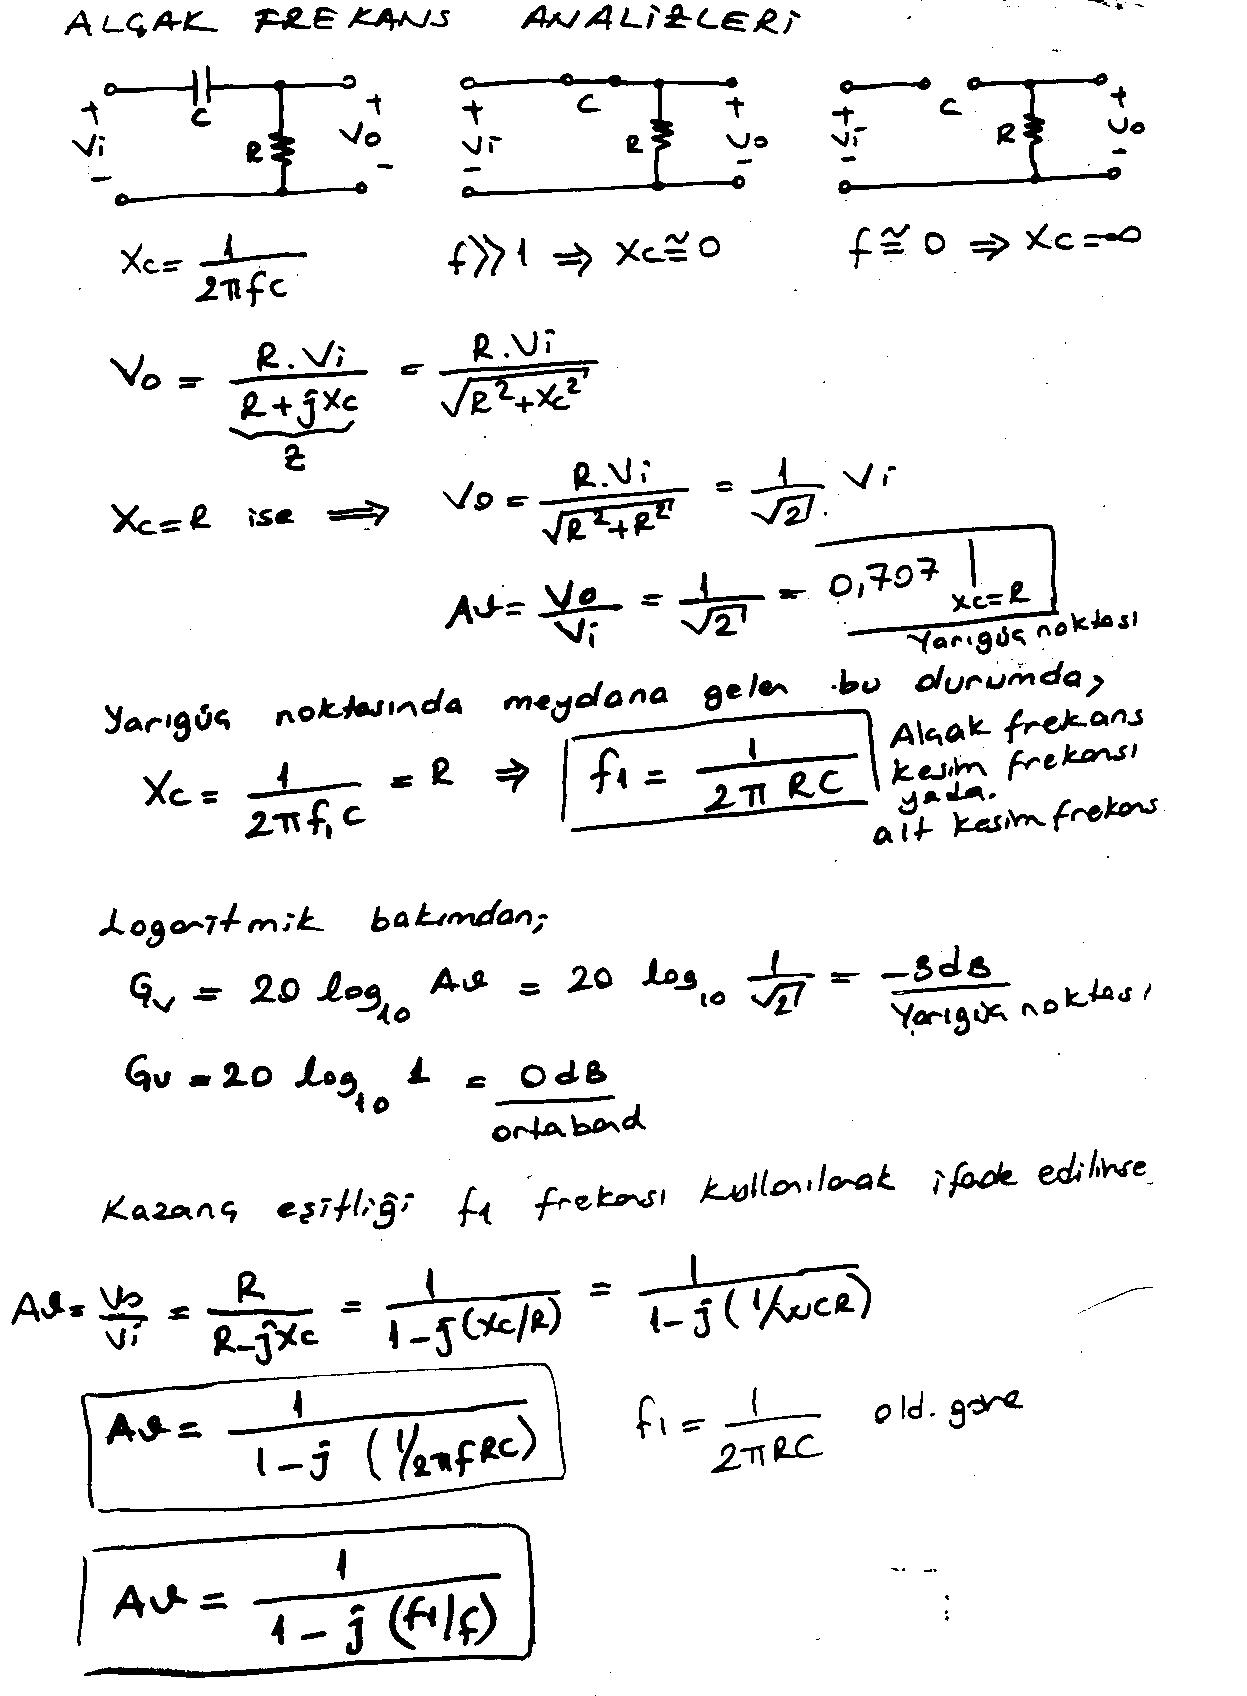 ALÇAK FREKANS ANALİZLERİ
+ Vi - C R + Vo -
+ Vi - C R + Vo -
+ Vi - C R + Vo -
Xc = 1/(2πfC)
f>>1 ⇒ Xc ≅ 0
f ≅ 0 ⇒ Xc = ∞
Vo = R.Vi/(R+jXc) = R.Vi/√(R²+Xc²)
Z
Xc=R ise ⇒ Vo = R.Vi/√(R²+R²) = 1/√2 . Vi
Aϑ = Vo/Vi = 1/√2 = 0,707 | Xc=R
Yarıgüç noktası
Yarıgüç noktasında meydana gelen bu durumda,
Xc = 1/(2πf₁C) = R ⇒ f₁ = 1/(2πRC)
Alçak frekans
kesim frekansı
yada.
alt kesim frekans
Logaritmik bakımdan;
Gv = 20 log₁₀ Aϑ = 20 log₁₀ 1/√2 = -3dB
Yarıgüç noktası
Gv = 20 log₁₀ 1 = 0dB
ortaband
Kazanç eşitliği f₁ frekansı kullanılarak ifade edilirse
Aϑ = Vo/Vi = R/(R-jXc) = 1/(1-j(Xc/R)) = 1/(1-j(1/wCR))
Aϑ = 1/(1-j(1/2πfRC))
f₁ = 1/(2πRC) old. göre
Aϑ = 1/(1-j(f₁/f))